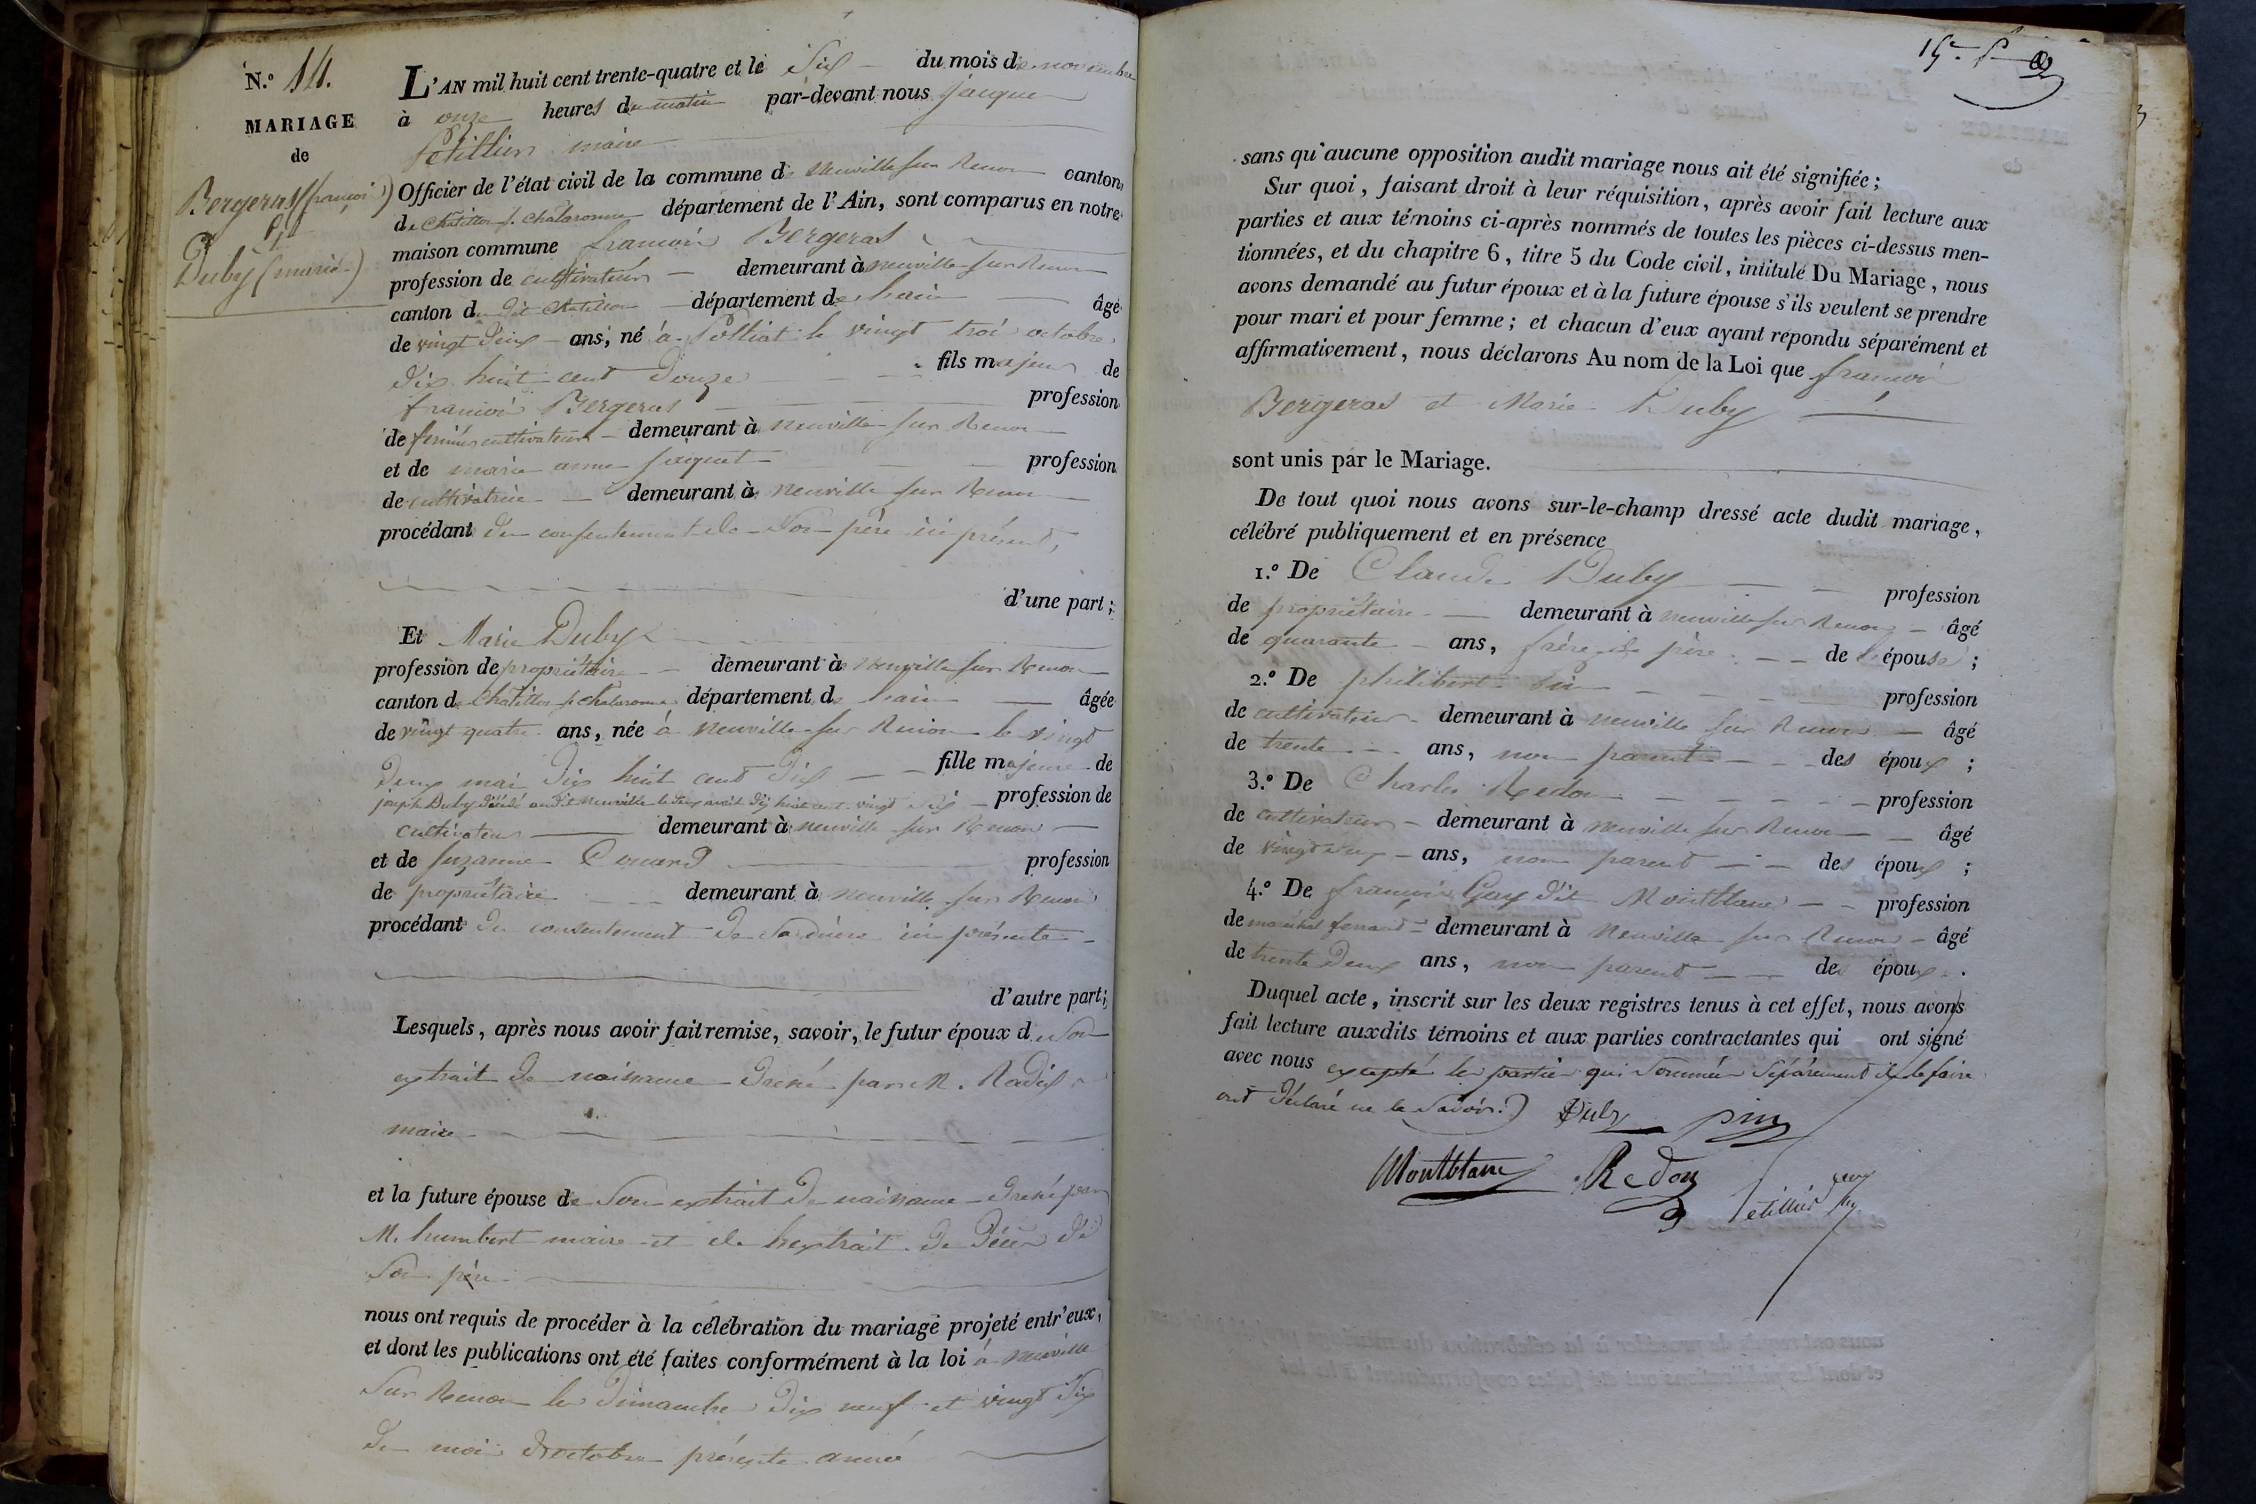 N.º 14.
MARIAGE
de
Bergeras (françois)
Et
Duby (marie)
L'AN mil huit cent trente-quatre et le Six du mois de novembre
à onze heures du matin par-devant nous Jacques
Petillier maire
Officier de l'état civil de la commune de neuville sur Renon canton
de Chatillon s. chalaronne département de l'Ain, sont comparus en notre
maison commune francois Bergeras
profession de cultivateur demeurant à neuville sur Renon
canton du dit Chatillon département de hain âgé
de vingt deux ans, né à Polliat le vingt trois octobre
dix huit cent douze fils majeur de
francois Bergeras profession
de fermier cultivateur demeurant à neuville sur Renon
et de marie anne profession
de cultivatrice demeurant à neuville sur Renon
procédant du consentement de Son père ici présent,
d'une part;
Et Marie Duby
profession de propriétaire demeurant à neuville sur Renon
canton de Chatillon s. chalaronne département de hain âgée
de vingt quatre ans, née à neuville sur Renon le vingt
deux mai dix huit cent dix fille majeure de
joseph Duby décédé audit neuville le deux août dix huit cent vingt six profession de
cultivateur demeurant à neuville sur Renon
et de Suzanne profession
de propriétaire demeurant à neuville sur Renon
procédant du consentement de Sa dite mère ici présente
d'autre part;
Lesquels, après nous avoir fait remise, savoir, le futur époux de Son
extrait de naissance dressé par M.
maire
et la future épouse de Son extrait de naissance dressé par
M. humbert maire et de l'extrait de décès de
Son père
nous ont requis de procéder à la célébration du mariage projeté entr'eux,
et dont les publications ont été faites conformément à la loi à neuville
Sur Renon les dimanche dix neuf et vingt Six
du mois d'octobre présente année
sans qu'aucune opposition audit mariage nous ait été signifiée;
Sur quoi, faisant droit à leur réquisition, après avoir fait lecture aux
parties et aux témoins ci-après nommés de toutes les pièces ci-dessus men-
tionnées, et du chapitre 6, titre 5 du Code civil, intitulé Du Mariage, nous
avons demandé au futur époux et à la future épouse s'ils veulent se prendre
pour mari et pour femme; et chacun d'eux ayant répondu séparément et
affirmativement, nous déclarons Au nom de la Loi que francois
Bergeras et Marie Duby
sont unis par le Mariage.
De tout quoi nous avons sur-le-champ dressé acte dudit mariage,
célébré publiquement et en présence
1.º De Claude Duby profession
de propriétaire demeurant à neuville sur Renon âgé
de quarante ans, frère du père de l'épouse;
2.º De philibert Pin profession
de cultivateur demeurant à neuville sur Renon âgé
de trente ans, non parent des époux;
3.º De Charles Redon profession
de cultivateur demeurant à neuville sur Renon âgé
de vingt deux ans, non parent des époux;
4.º De francois Gay dit Montblanc profession
de maréchal ferrant demeurant à Neuville sur Renon âgé
de trente deux ans, non parent des époux.
Duquel acte, inscrit sur les deux registres tenus à cet effet, nous avons
fait lecture auxdits témoins et aux parties contractantes qui ont signé
avec nous excepté les parties qui Sommées Séparément de le faire
ont déclaré ne le Savoir.
Duby pin
Montblanc Redon Petillier